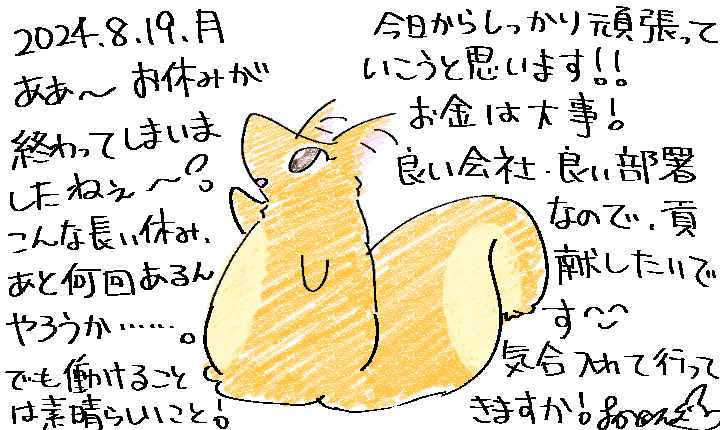 2024.8.19.月
ああ～お休みが
終わってしまいま
したねぇ～!
こんな長い休み、
あと何回あるん
やろうか……。
でも働けること
は素晴らしいこと!
今日からしっかり頑張って
いこうと思います!!
お金は大事!
良い会社・良い部署
なので、貢
献したいで
す
気合入れて行って
きますか!